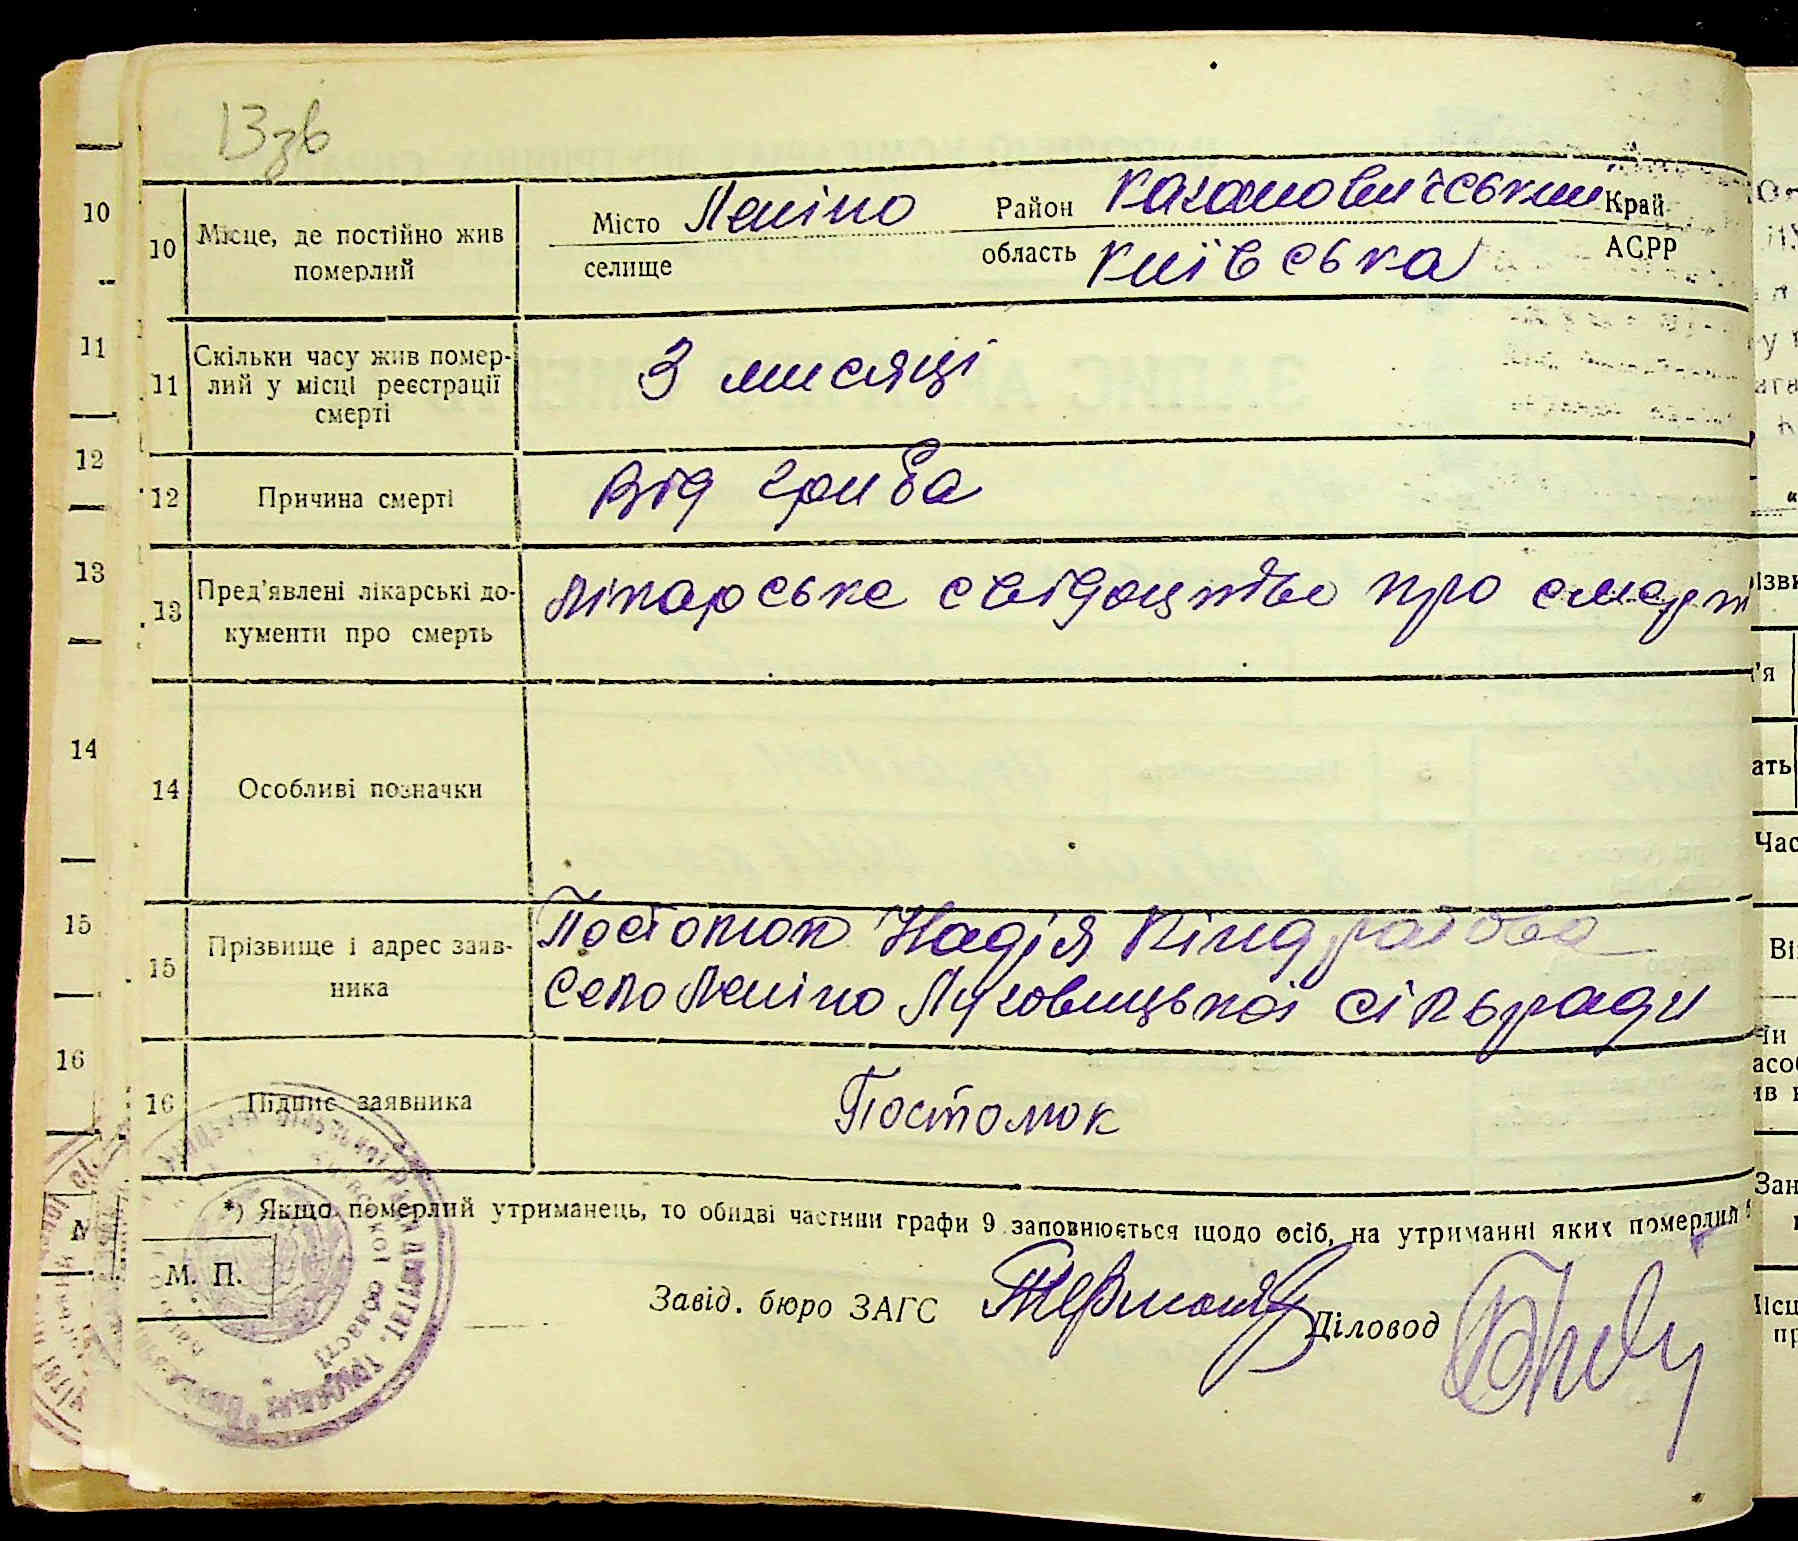 13зв
10 Місце, де постійно жив померлий
Місто Леніно Район Кагановичський Край
селище область Київська АСРР
11 Скільки часу жив помер-
лий у місці реєстрації
смерті
3 мисяці
12 Причина смерті Від гриба
13 Пред'явлені лікарські до-
кументи про смерть
лікарське свідоцтво про смерт
14 Особливі позначки
15 Прізвище і адрес заяв-
ника
Постолюк Надія Кіндратова
Село Леніно Луговицької сільради
16 Підпис заявника Постолюк
*) Якщо померлий утриманець, то обидві частини графи 9 заповнюється щодо осіб, на утриманні яких померлий
М. П.
Завід. бюро ЗАГС Діловод
10
11
12
13
14
15
16